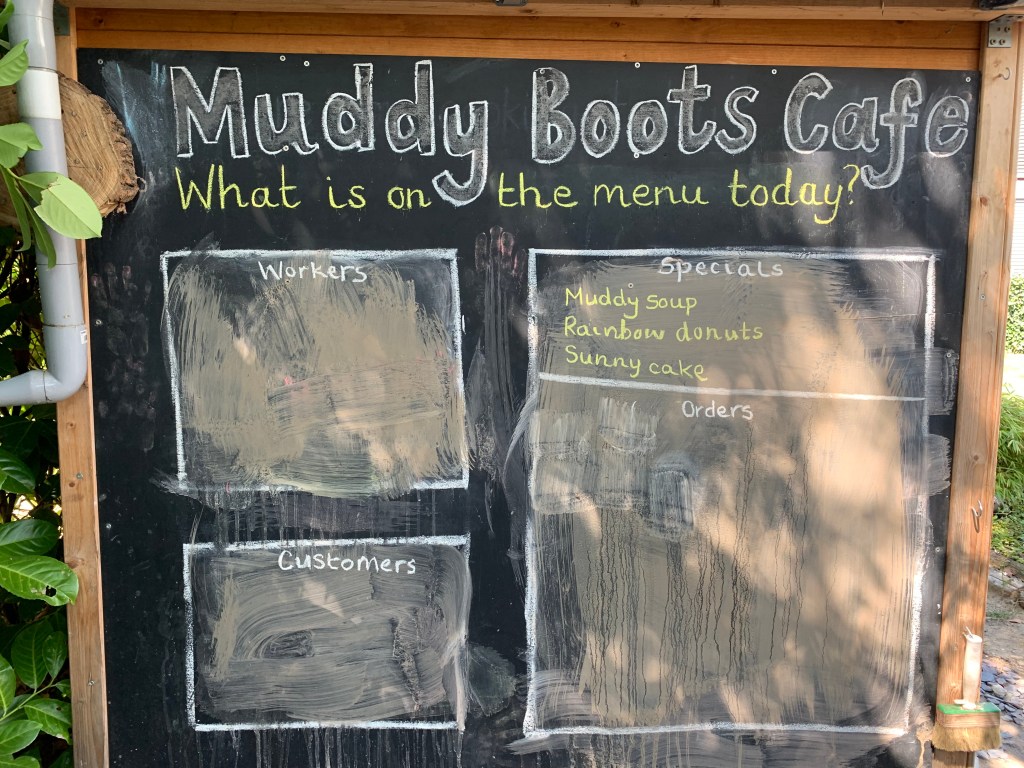 Muddy Boots Cafe
What is on the menu today?
Workers
Specials
Muddy soup
Rainbow donuts
Sunny cake
Orders
Customers